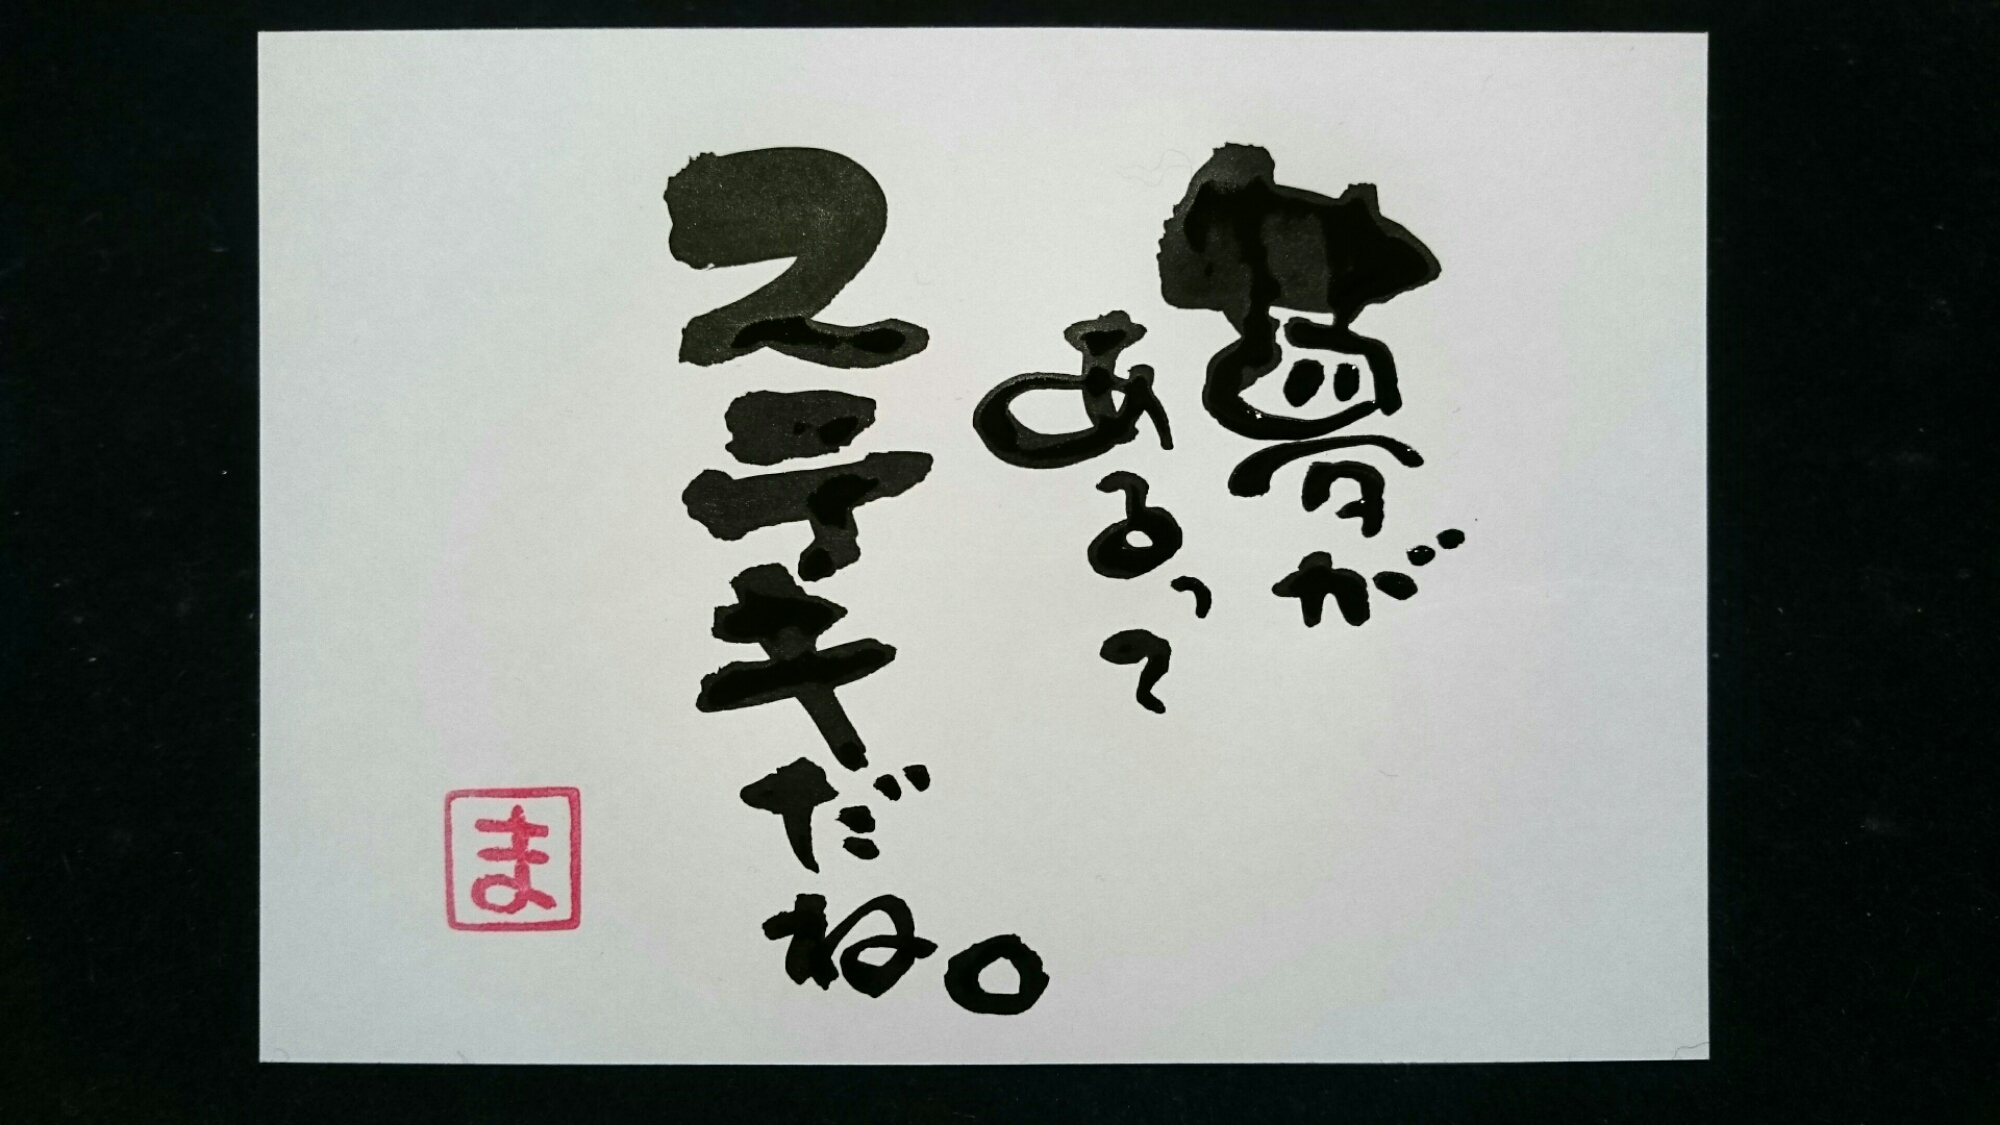 夢が
あるって
ステキだね。
ま